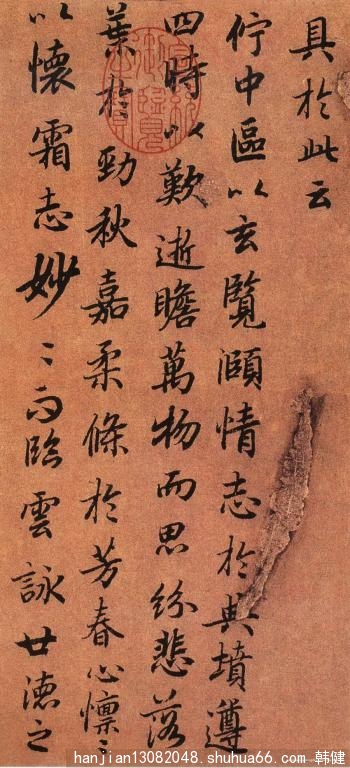 具於此云
佇中區以玄覽頤情志於典墳遵
四時以歎逝瞻萬物而思紛悲落
葉於勁秋嘉柔條於芳春心懍〻
以懷霜志妙〻而臨雲詠世德之
hanjian13082048.shuhua66.com 韩健